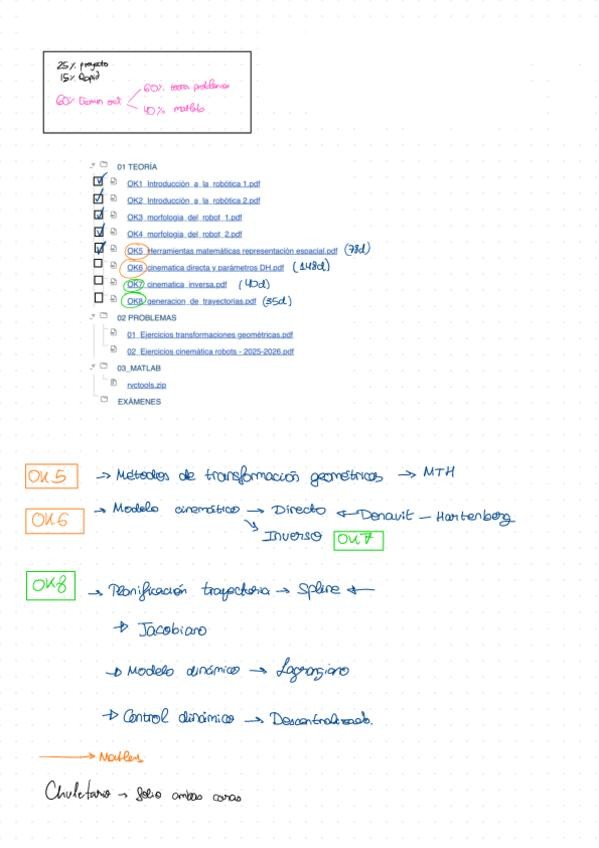 25% proyecto
15% Rapid
60% Examen
60% teoria problemas
40% matlab
01 TEORÍA
OK1_Introducción_a_la_robótica 1.pdf
OK2_Introducción_a_la_robótica 2.pdf
OK3_morfologia_del_robot_1.pdf
OK4_morfologia_del_robot_2.pdf
OK5_Herramientas matemáticas representación espacial.pdf (78d)
OK6_cinematica directa y parámetros DH.pdf (148d)
OK7_cinematica_inversa.pdf (40d)
OK8_generacion_de_trayectorias.pdf (35d)
02 PROBLEMAS
01_Ejercicios transformaciones geométricas.pdf
02_Ejercicios cinemática robots - 2025-2026.pdf
03_MATLAB
rvctools.zip
EXÁMENES
OK5 → Métodos de transformación geométricas → MTH
OK6 → Modelo cinemático → Directo ← Denavit - Hartenberg
↘ Inverso OK7
OK8 → Planificación trayectoria → Spline ←
→ Jacobiano
→ Modelo dinámico → Lagrangiano
→ Control dinámico → Descentralizado.
→ Matlab
Chuletario → folio ambas caras